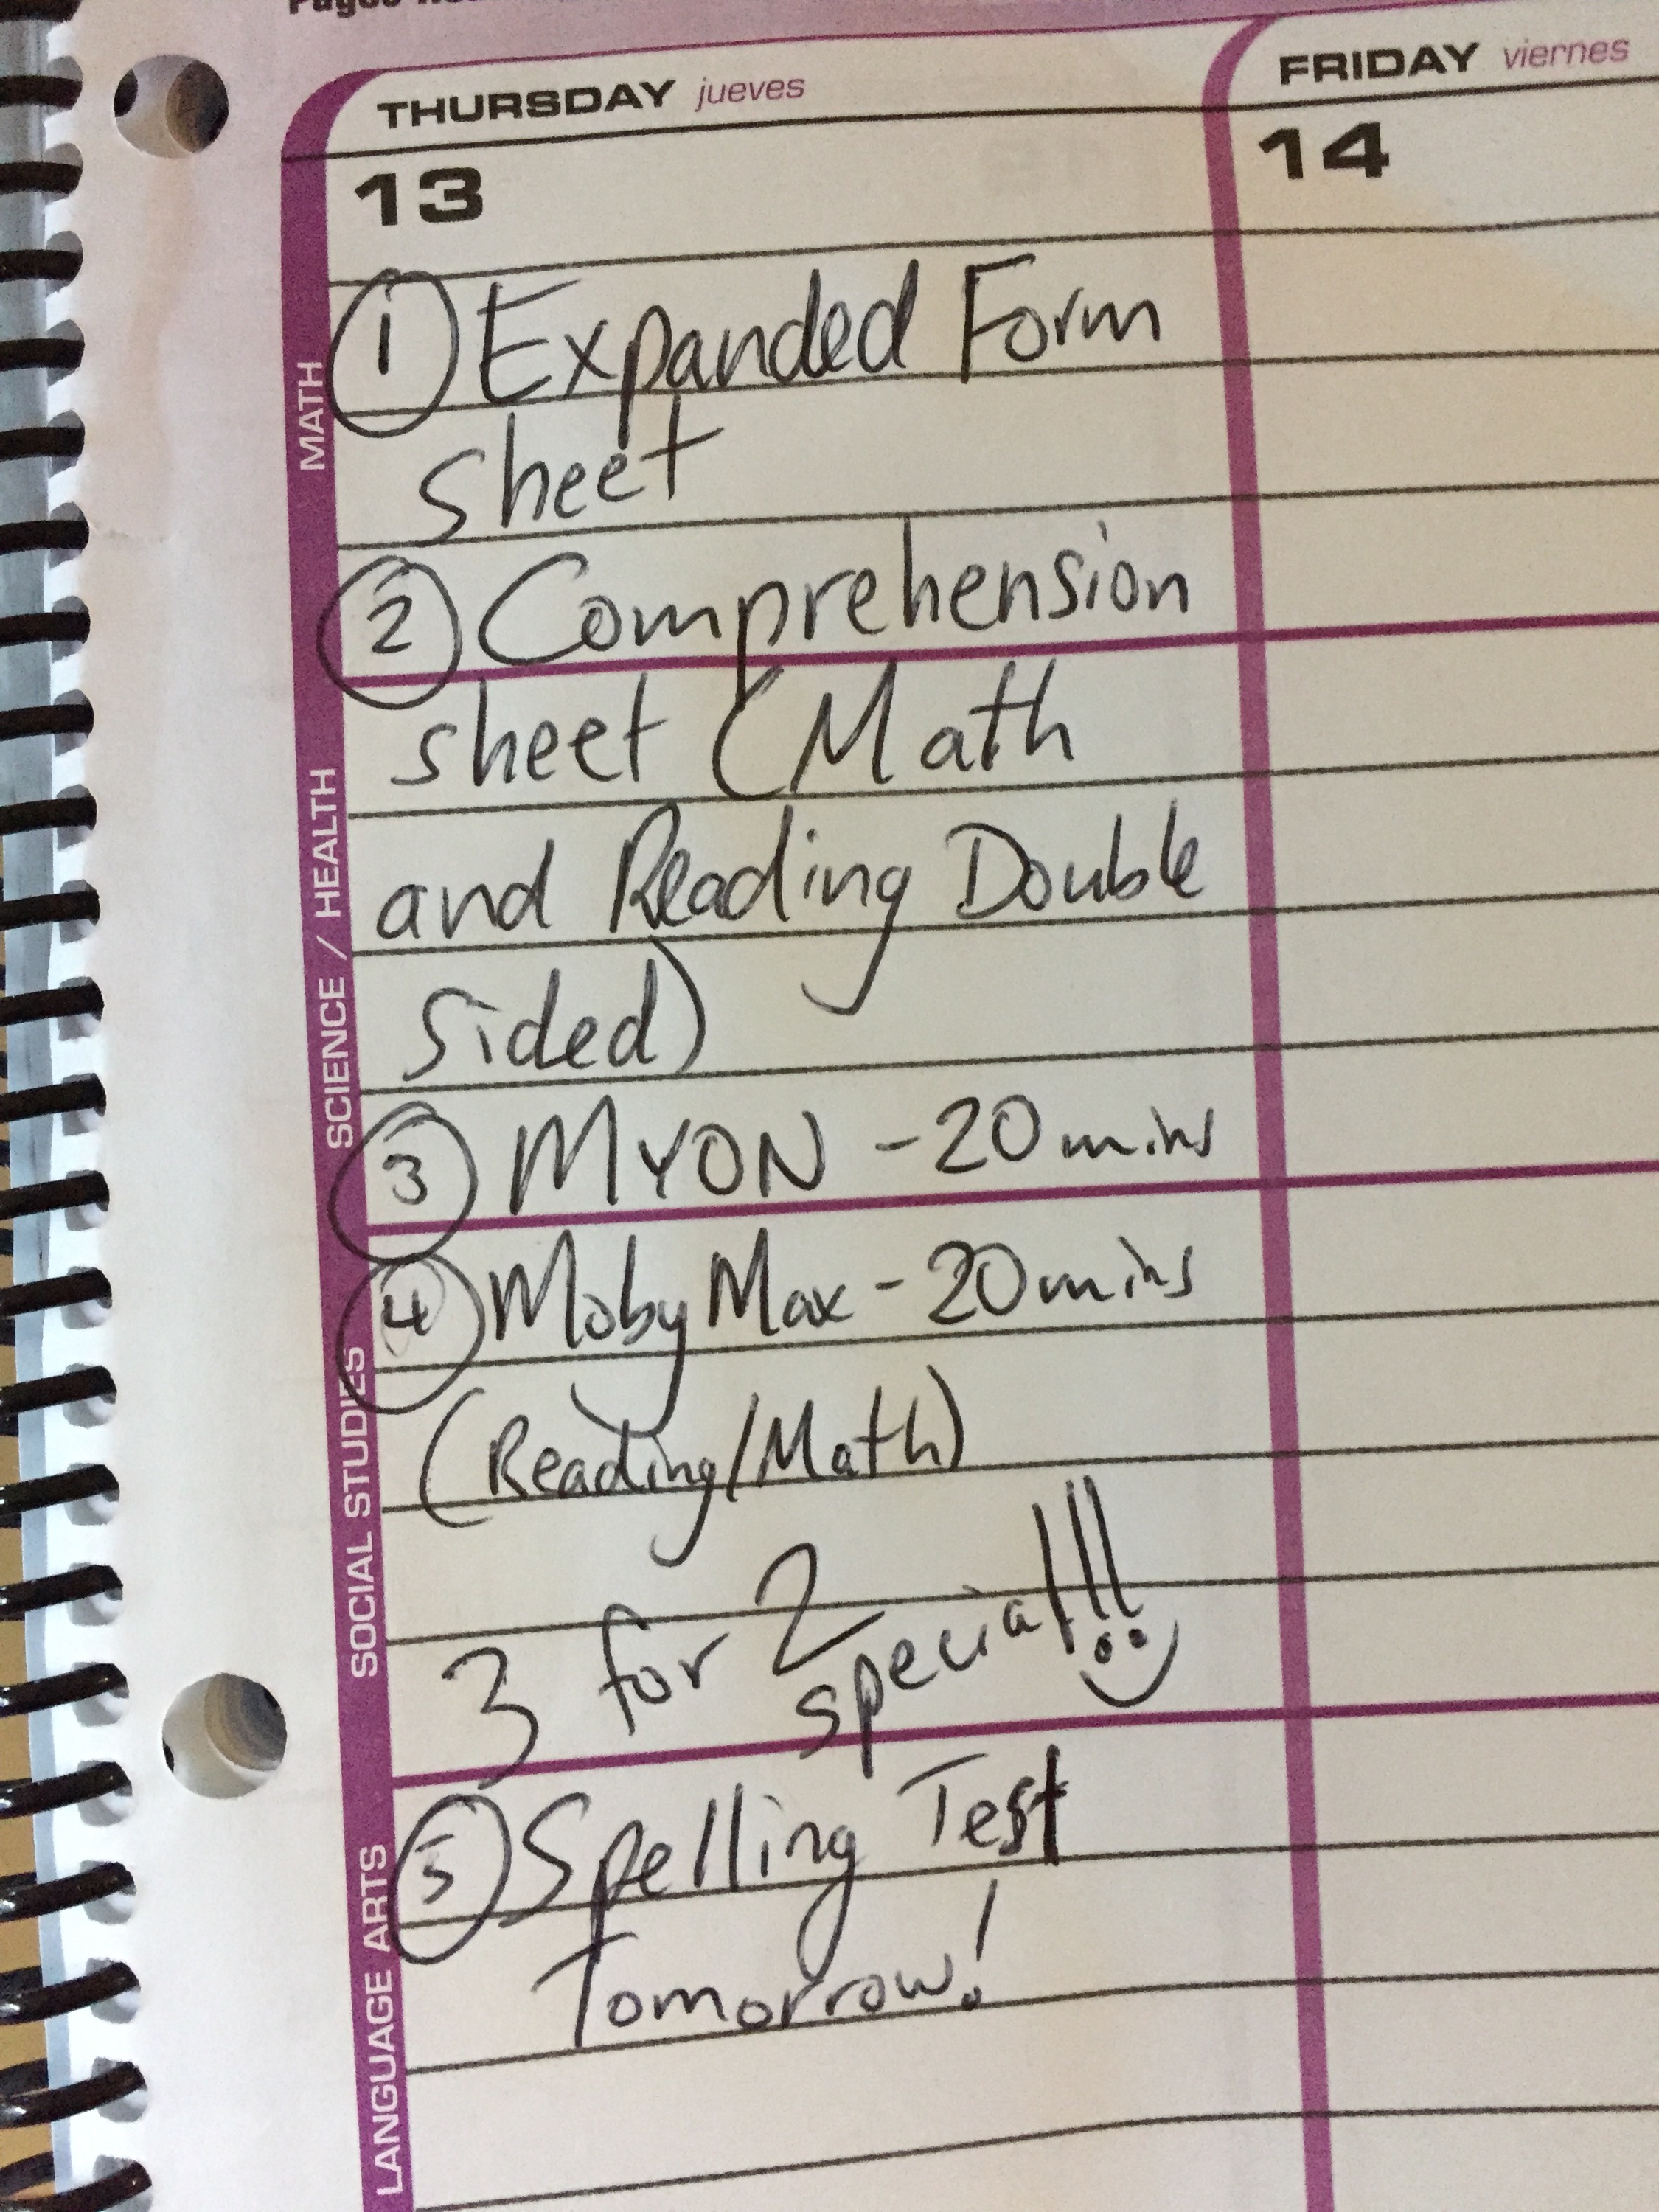 THURSDAY jueves
13
① Expanded Form
sheet
② Comprehension
sheet (Math
and Reading Double
sided)
③ MYON - 20 mins
④ Moby Max - 20 mins
(Reading/Math)
3 for 2
special!!!
⑤ Spelling Test
Tomorrow!
FRIDAY viernes
14
MATH
SCIENCE / HEALTH
SOCIAL STUDIES
LANGUAGE ARTS